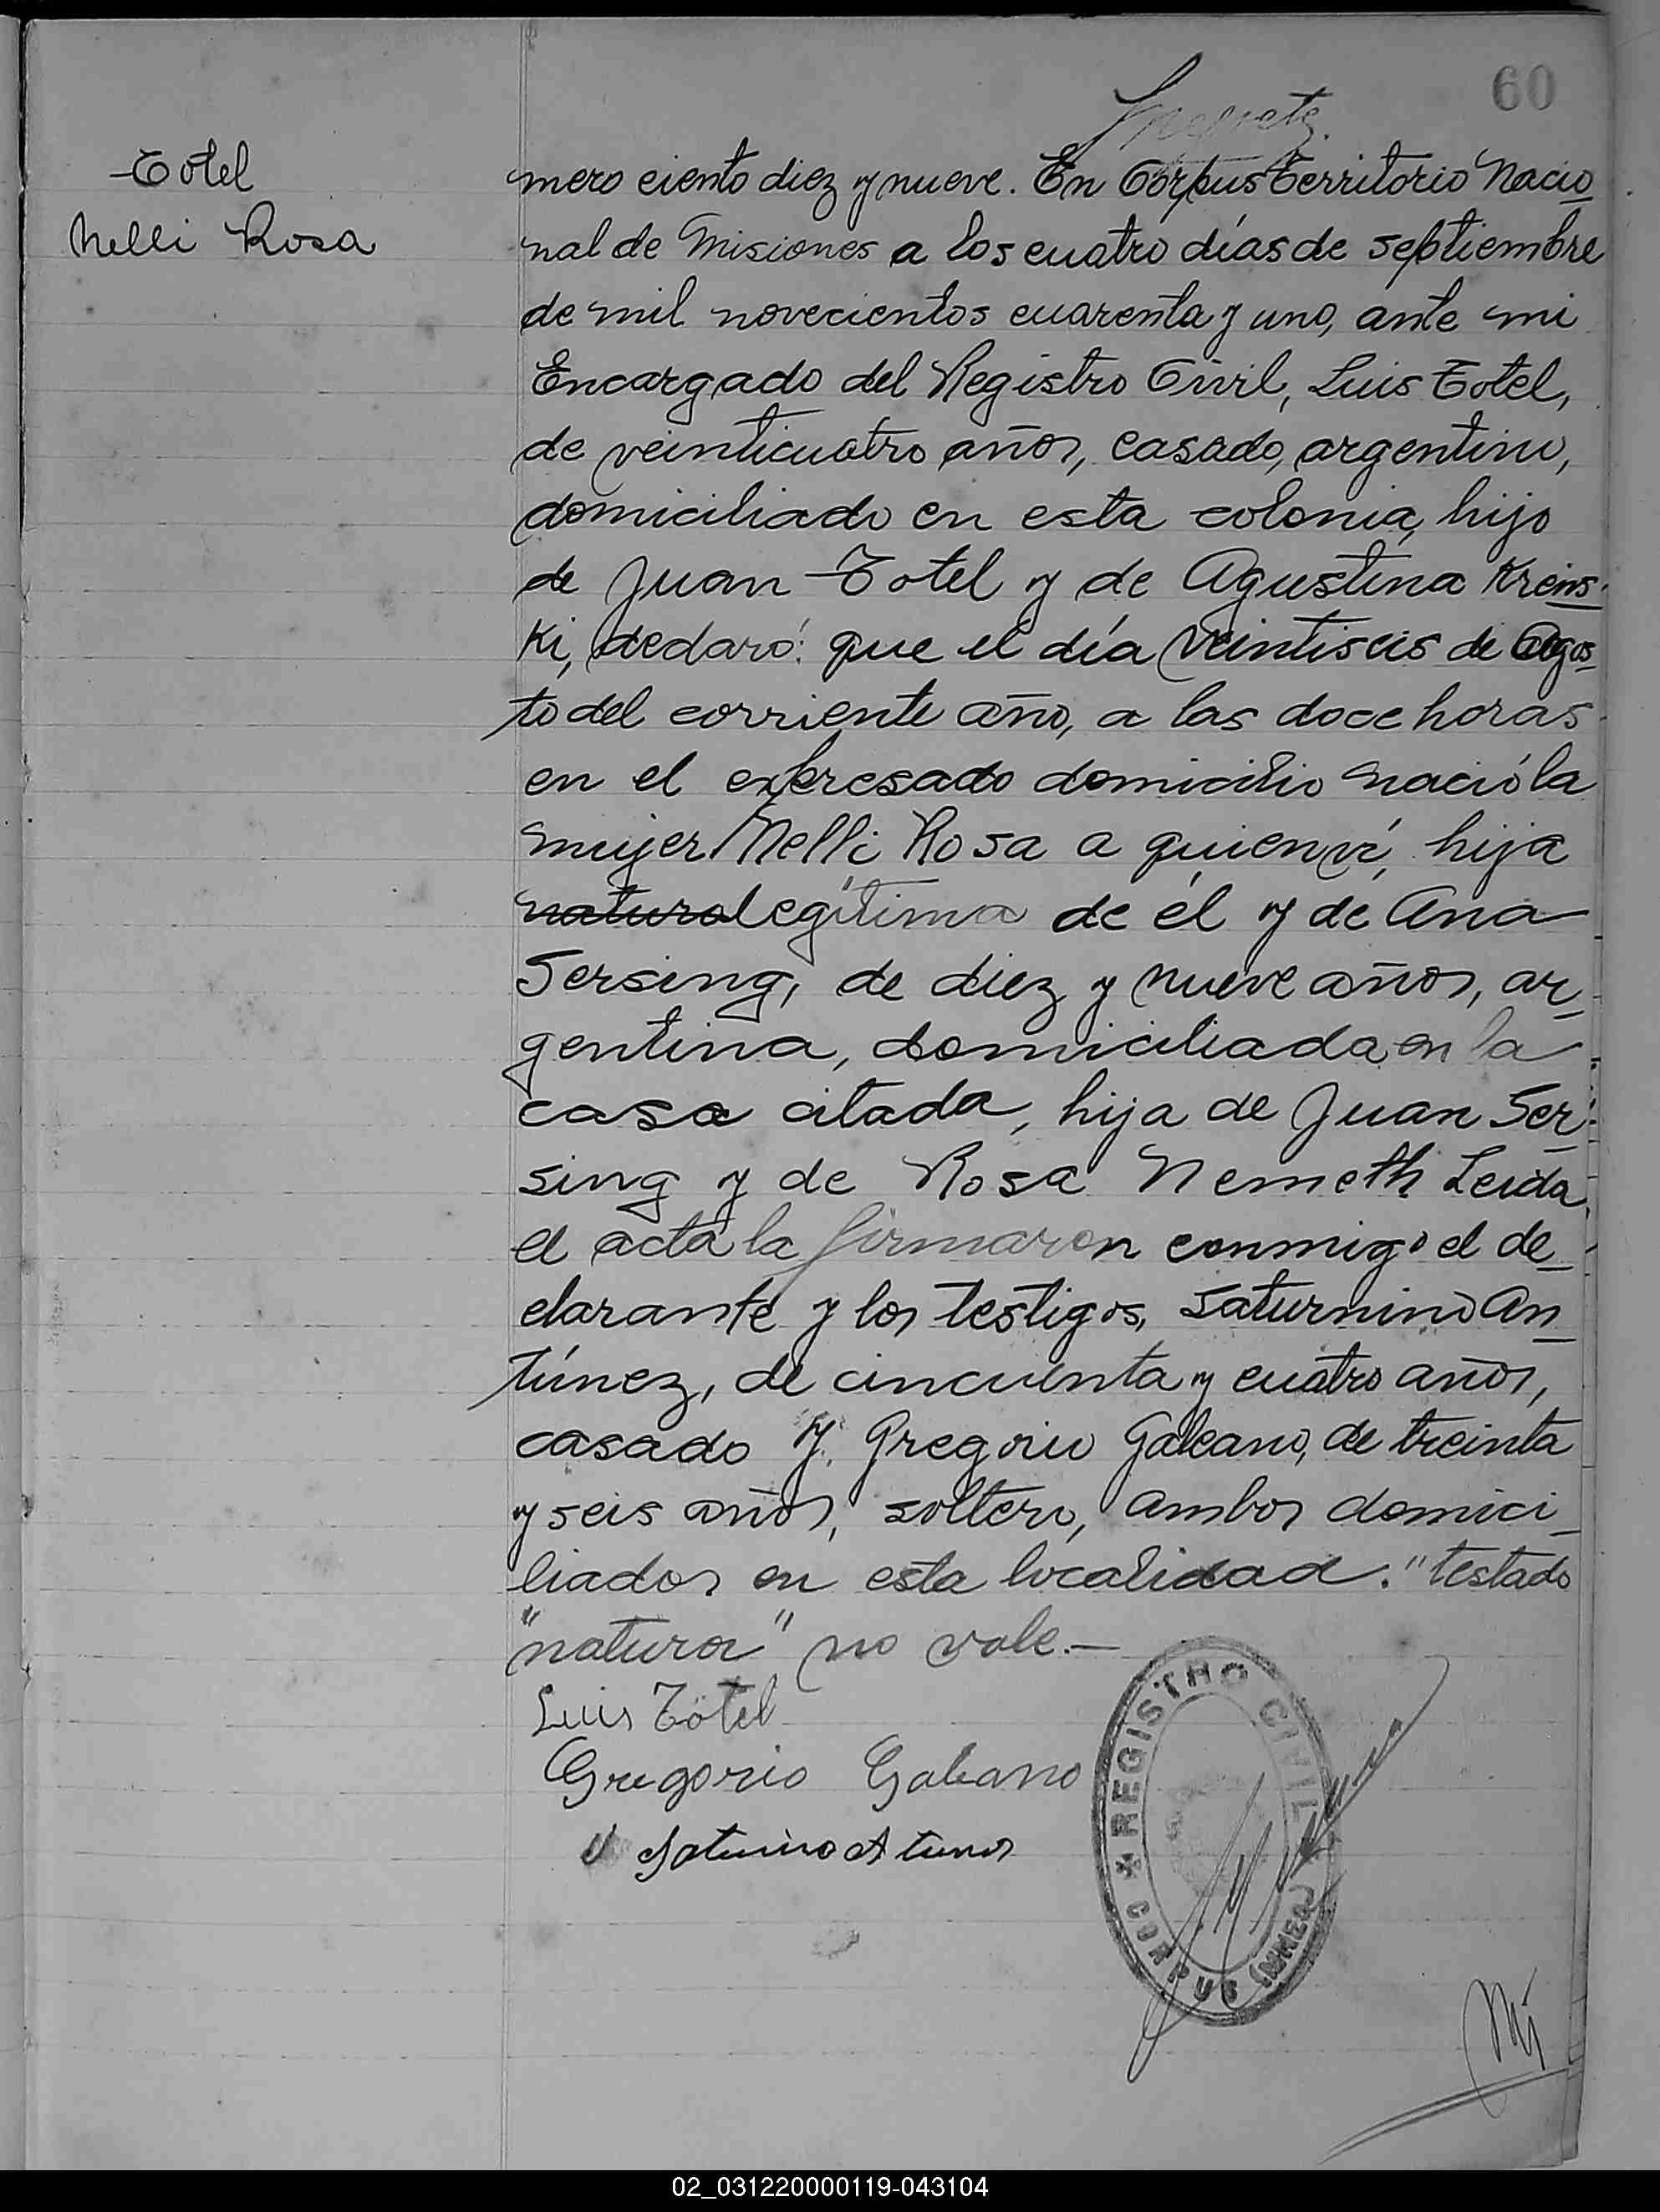 60
Totel
Nelli Rosa
mero ciento diez y nueve. En Corpus Territorio Nacio
nal de Misiones a los cuatro días de septiembre
de mil novecientos cuarenta y uno, ante mi
Encargado del Registro Civil, Luis Totel,
de veinticuatro años, casado, argentino,
domiciliado en esta colonia, hijo
de Juan Totel y de Agustina Kreins-
ki, declaró: que el día veintiseis de Agos
to del corriente año, a las doce horas
en el expresado domicilio nació la
mujer Nelli Rosa a quien ví, hija
natural egítima de él y de Ana
Sersing, de diez y nueve años, ar
gentina, domiciliada en la
casa citada, hija de Juan Ser
sing y de Rosa Nemeth Leida
el acta la firmaron conmigo el de
clarante y los testigos, Saturnino An
túnez, de cincuenta y cuatro años,
casado y Gregorio Galeano, de treinta
y seis años, soltero, ambos domici
liados en esta localidad. "testado
"natura" no vale.—
Luis Tötel
Gregorio Galeano
REGISTRO CIVIL
CORPUS
02_031220000119-043104